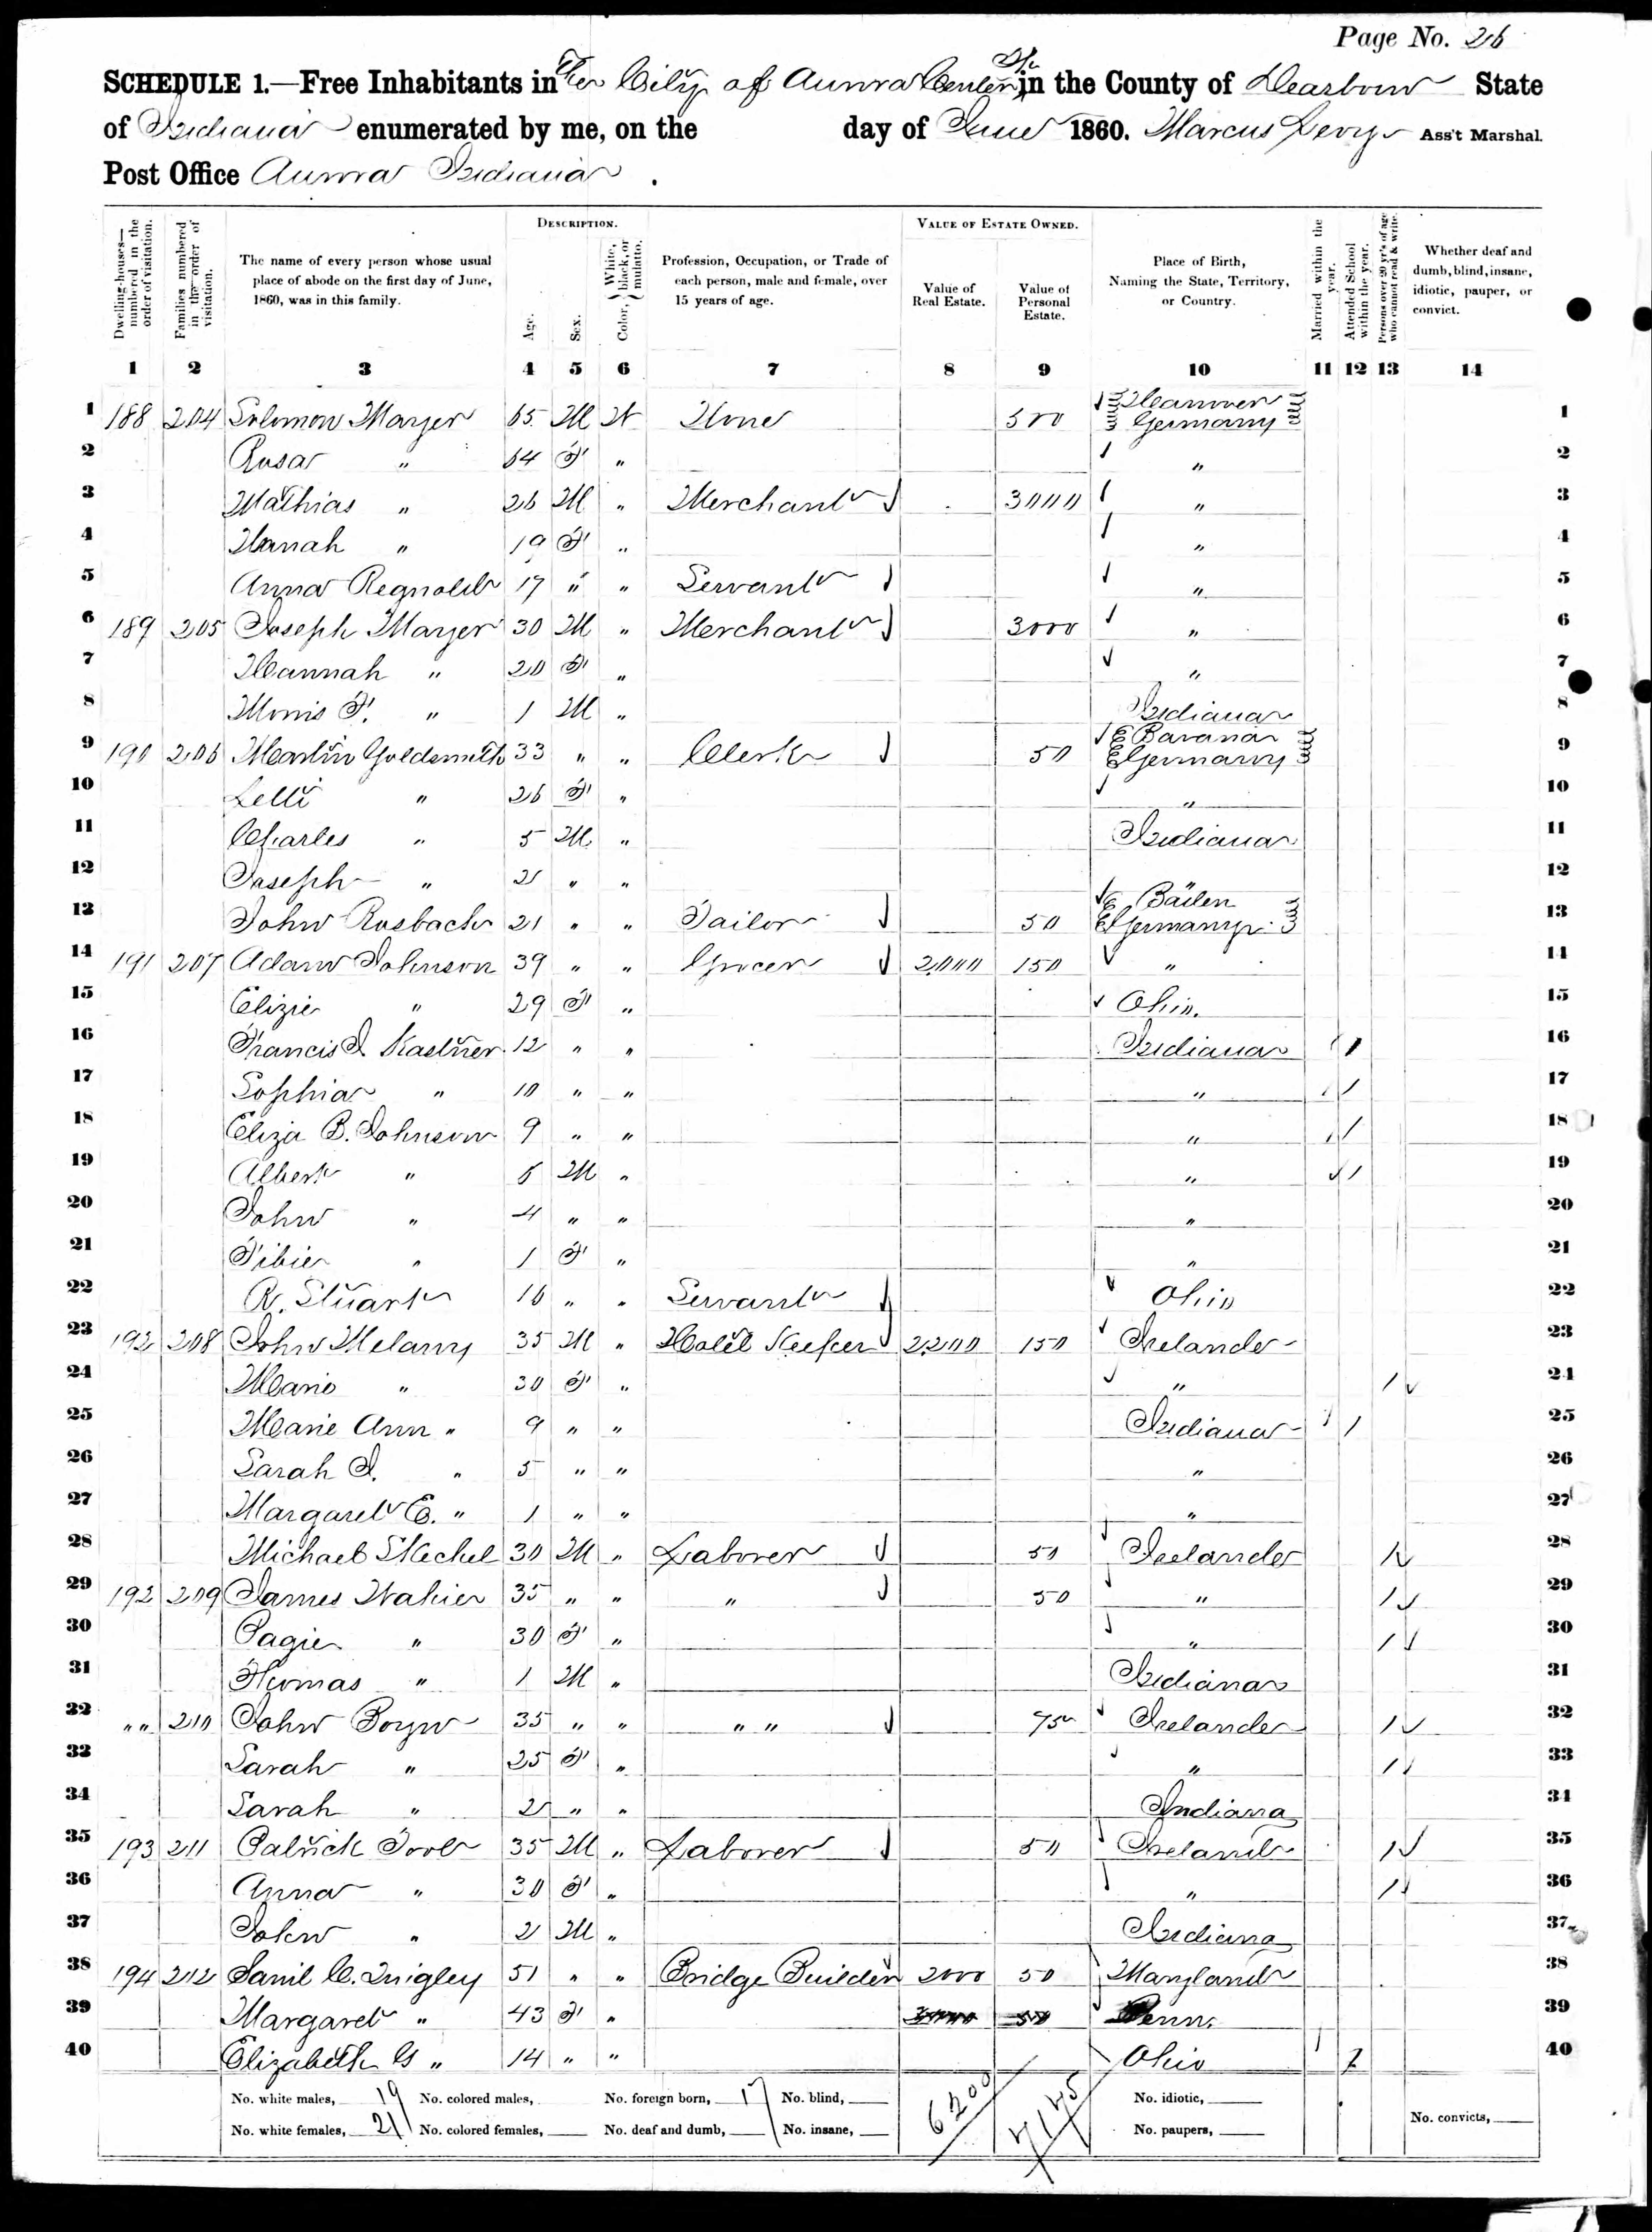 Page No. 26
SCHEDULE 1.—Free Inhabitants in The City of Aurora Center Tp in the County of Dearborn State
of Indiana enumerated by me, on the day of June 1860. Marcus Levy Ass't Marshal.
Post Office Aurora Indiana .
Dwelling-houses—numbered in the order of visitation. Families numbered in the order of visitation. The name of every person whose usual place of abode on the first day of June, 1860, was in this family. DESCRIPTION. Age. Sex. Color, White, black, or mulatto. Profession, Occupation, or Trade of each person, male and female, over 15 years of age. VALUE OF ESTATE OWNED. Value of Real Estate. Value of Personal Estate. Place of Birth, Naming the State, Territory, or Country. Married within the year. Attended School within the year. Persons over 20 yr's of age who cannot read & write. Whether deaf and dumb, blind, insane, idiotic, pauper, or convict.
1 2 3 4 5 6 7 8 9 10 11 12 13 14
1 188 204 Solomon Mayer 65 M W None 500 Hanover Germany 1
2 Rosa " 64 F " " 2
3 Mathias " 26 M " Merchant 3000 " 3
4 Hanah " 19 F " " 4
5 Anna Regnold 17 " " Servant " 5
6 189 205 Joseph Mayer 30 M " Merchant 3000 " 6
7 Hannah " 20 F " " 7
8 Morris F. " 1 M " Indiana 8
9 190 206 Martin Goldsmith 33 " " Clerk 50 Bavaria Germany 9
10 Letti " 26 F " " 10
11 Charles " 5 M " Indiana 11
12 Joseph " 2 " " 12
13 John Rosbach 21 " " Tailor 50 Baden Germany 13
14 191 207 Adam Johnson 39 " " Grocer 2000 150 " 14
15 Elizie " 29 F " Ohio. 15
16 Francis J Kastner 12 " " Indiana 1 16
17 Sophia " 10 " " " 1 17
18 Eliza B. Johnson 9 " " " 1 18
19 Albert " 6 M " " 1 19
20 John " 4 " " " 20
21 Tibie " 1 F " " 21
22 R. Stuart 16 " " Servant Ohio 22
23 192 208 John Melany 35 M " Hotel Keeper 2200 150 Ireland 23
24 Marie " 30 F " " 1 24
25 Marie Ann " 9 " " Indiana 1 25
26 Sarah J. " 5 " " " 26
27 Margaret E. " 1 " " " 27
28 Michael 30 M " Laborer 50 Ireland 1 28
29 192 209 James 35 " " " 50 " 1 29
30 Pagie " 30 F " " 1 30
31 Thomas " 1 M " Indiana 31
32 " " 210 John Boyn 35 " " " " 75 Ireland 1 32
33 Sarah " 25 F " " 1 33
34 Sarah " 2 " " Indiana 34
35 193 211 Patrick Tool 35 M " Laborer 50 Ireland 1 35
36 Anna " 30 F " " 1 36
37 John " 2 M " Indiana 37
38 194 212 Saml C. Quigley 51 " " Bridge Builder 2000 50 Maryland 38
39 Margaret " 43 F " Penn. 39
40 Elizabeth G " 14 " " Ohio 1 40
No. white males, 19 No. colored males, No. foreign born, 17 No. blind, 6200 7175 No. idiotic,
No. white females, 21 No. colored females, No. deaf and dumb, No. insane, No. paupers, No. convicts,